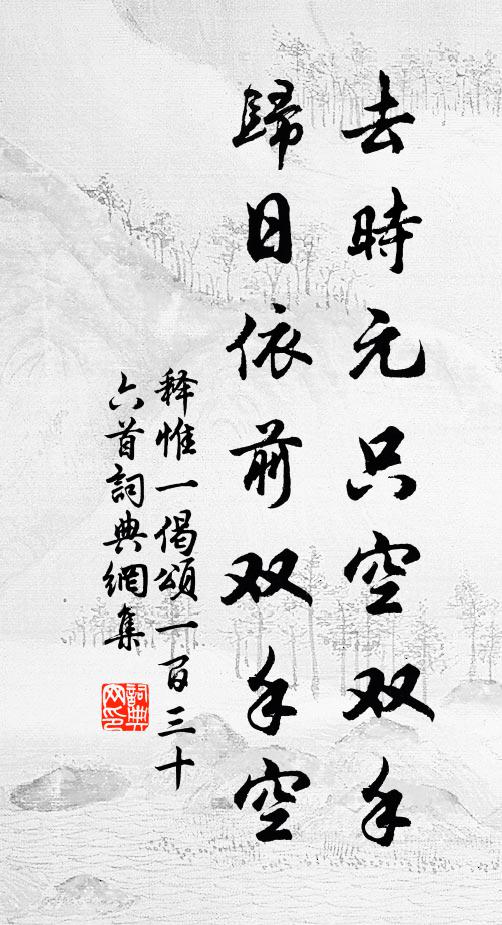 去時元只空双手
歸日依前双手空
释惟一偈頌一百三十
六首詞典網集
詞典网印